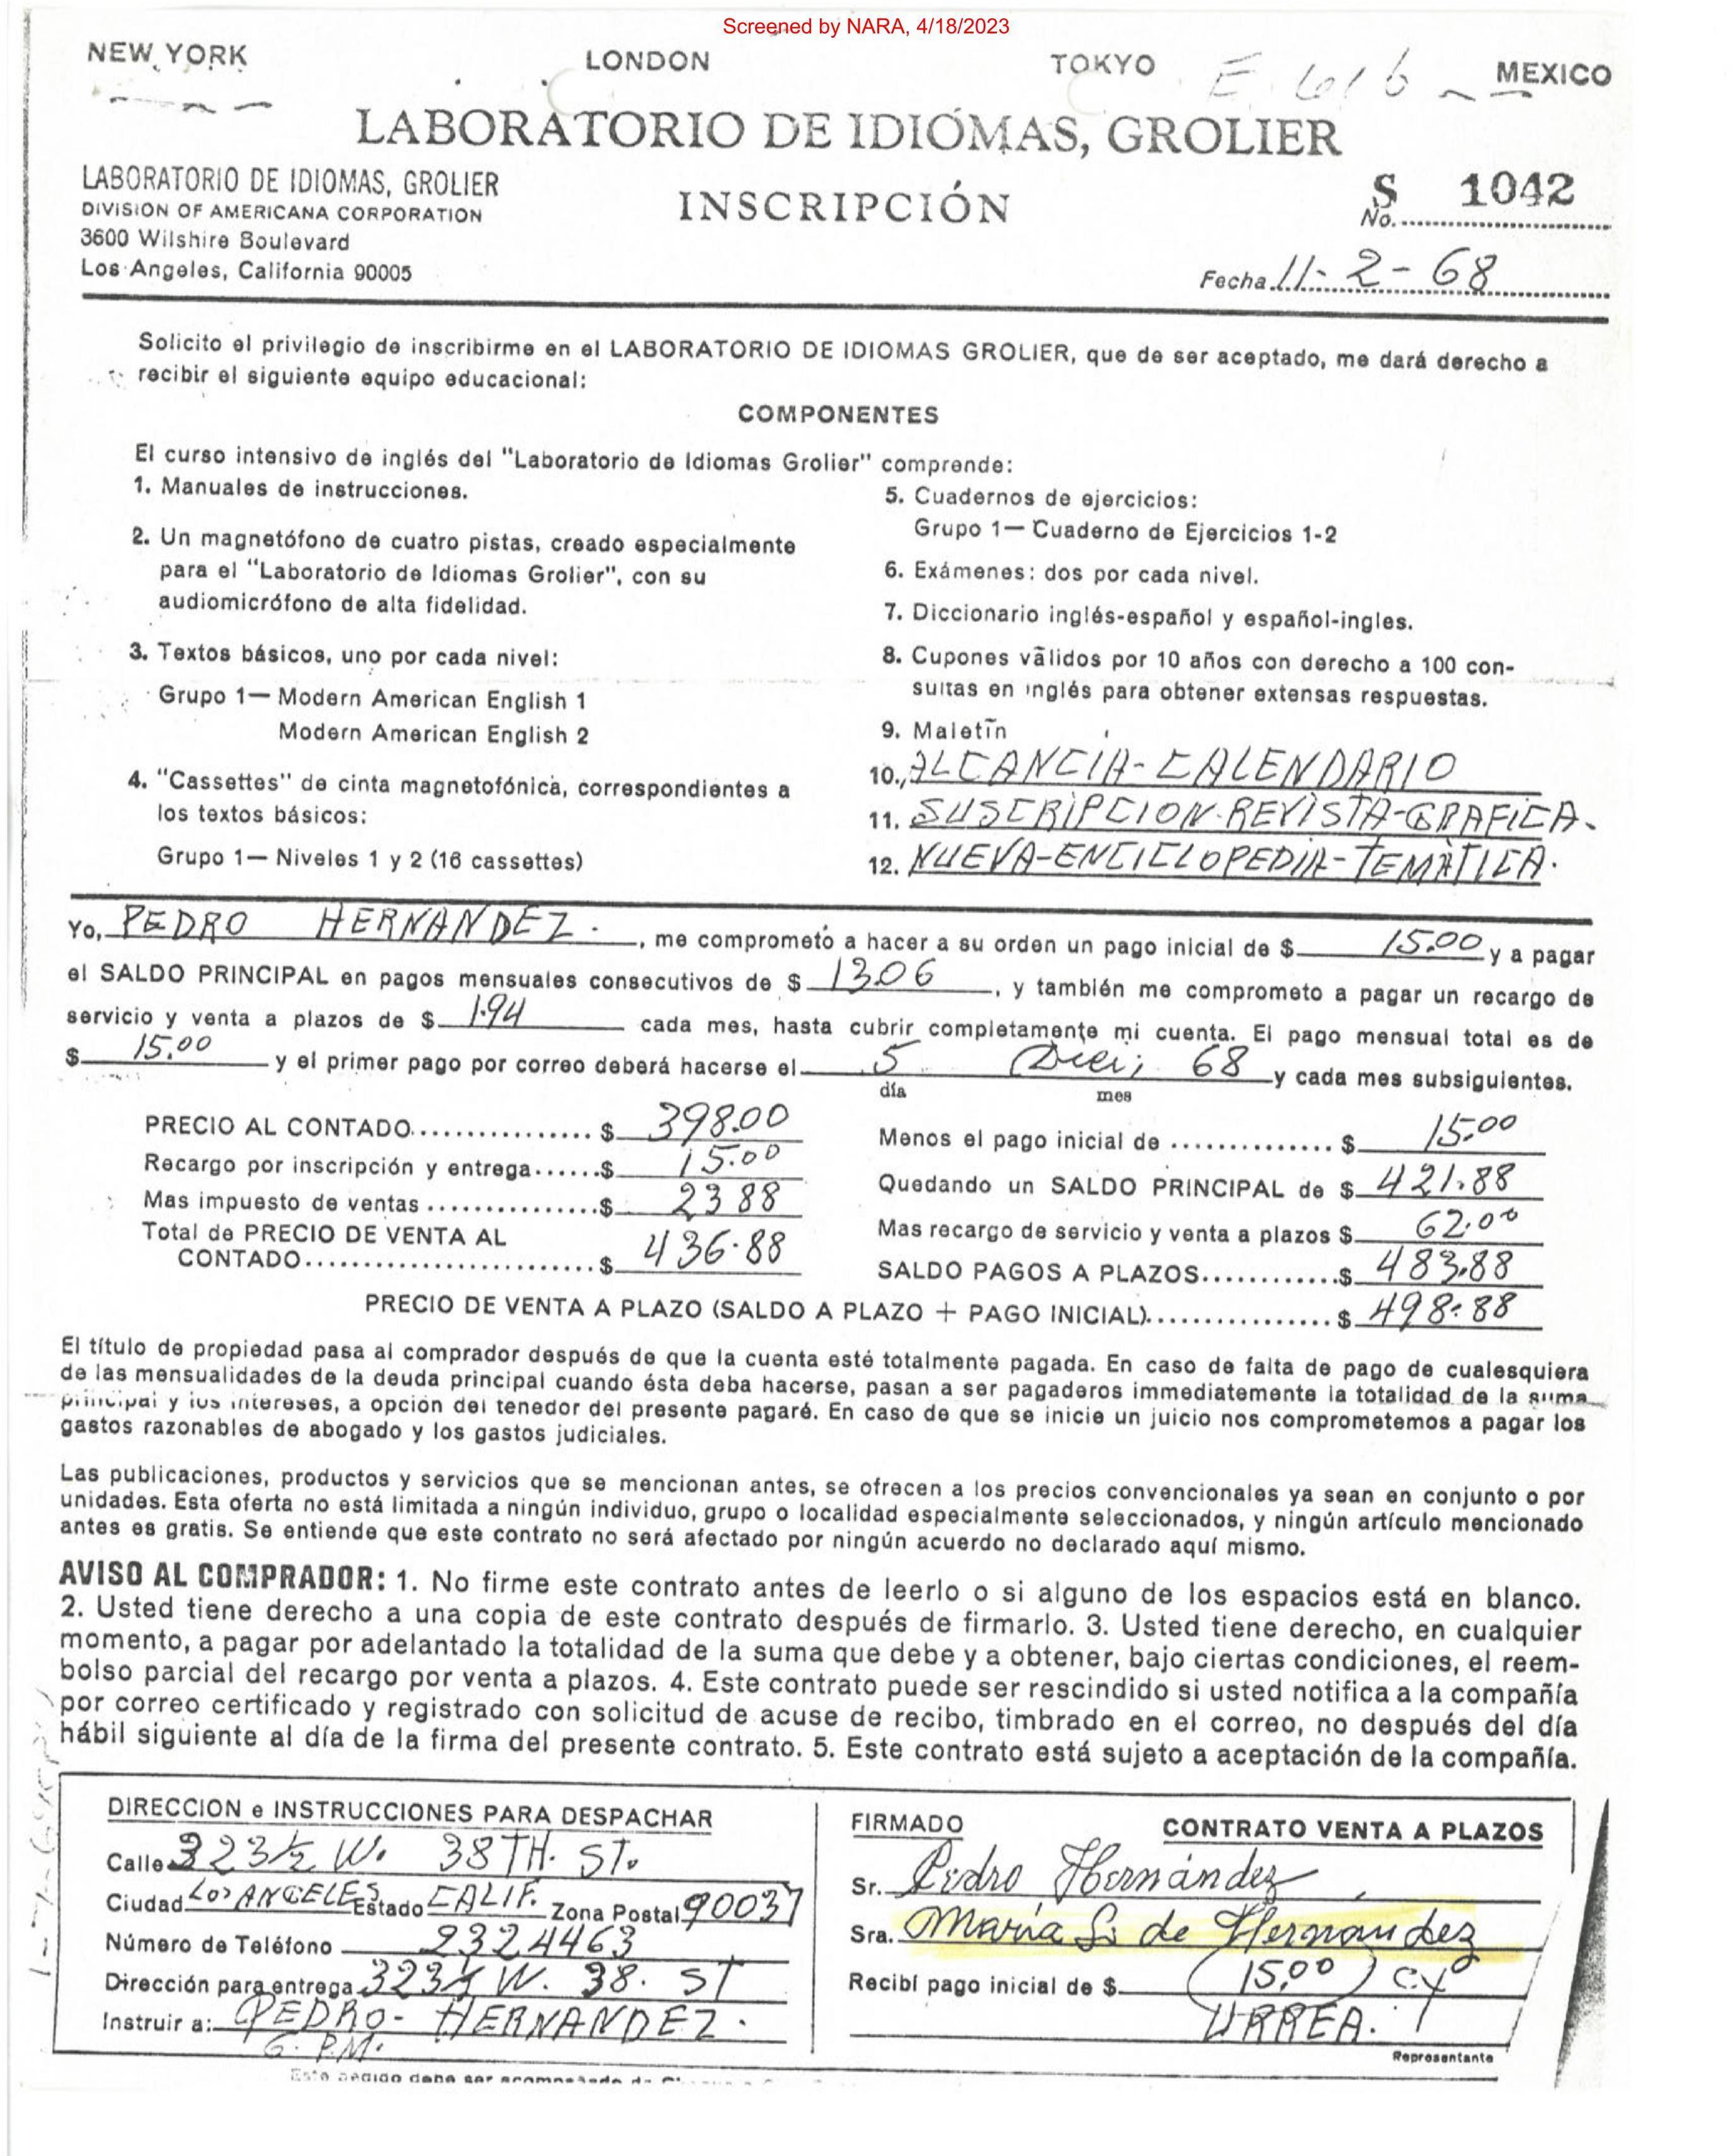 Screened by NARA, 4/18/2023
NEW YORK LONDON TOKYO E 616 MEXICO
LABORATORIO DE IDIOMAS, GROLIER
LABORATORIO DE IDIOMAS, GROLIER
DIVISION OF AMERICANA CORPORATION
3600 Wilshire Boulevard
Los Angeles, California 90005
INSCRIPCIÓN
S 1042
No.
Fecha 11-2-68
Solicito el privilegio de inscribirme en el LABORATORIO DE IDIOMAS GROLIER, que de ser aceptado, me dará derecho a
recibir el siguiente equipo educacional:
COMPONENTES
El curso intensivo de inglés del "Laboratorio de Idiomas Grolier" comprende:
1. Manuales de instrucciones.
2. Un magnetófono de cuatro pistas, creado especialmente
para el "Laboratorio de Idiomas Grolier", con su
audiomicrófono de alta fidelidad.
3. Textos básicos, uno por cada nivel:
Grupo 1— Modern American English 1
Modern American English 2
4. "Cassettes" de cinta magnetofónica, correspondientes a
los textos básicos:
Grupo 1— Niveles 1 y 2 (16 cassettes)
5. Cuadernos de ejercicios:
Grupo 1— Cuaderno de Ejercicios 1-2
6. Exámenes: dos por cada nivel.
7. Diccionario inglés-español y español-ingles.
8. Cupones válidos por 10 años con derecho a 100 con-
sultas en inglés para obtener extensas respuestas.
9. Maletín
10. ALCANCIA-CALENDARIO
11. SUSCRIPCION-REVISTA-GRAFICA.
12. NUEVA-ENCICLOPEDIA-TEMÀTICA.
Yo, PEDRO HERNANDEZ., me comprometo a hacer a su orden un pago inicial de $ 15.00 y a pagar
el SALDO PRINCIPAL en pagos mensuales consecutivos de $ 13.06, y también me comprometo a pagar un recargo de
servicio y venta a plazos de $ 1.94 cada mes, hasta cubrir completamente mi cuenta. El pago mensual total es de
$ 15.00 y el primer pago por correo deberá hacerse el 5 68 y cada mes subsiguientes.
día mes
PRECIO AL CONTADO $ 398.00
Recargo por inscripción y entrega $ 15.00
Mas impuesto de ventas $ 23 88
Total de PRECIO DE VENTA AL
CONTADO $ 436.88
Menos el pago inicial de $ 15.00
Quedando un SALDO PRINCIPAL de $ 421.88
Mas recargo de servicio y venta a plazos $ 62.00
SALDO PAGOS A PLAZOS $ 483.88
PRECIO DE VENTA A PLAZO (SALDO A PLAZO + PAGO INICIAL) $ 498.88
El título de propiedad pasa al comprador después de que la cuenta esté totalmente pagada. En caso de falta de pago de cualesquiera
de las mensualidades de la deuda principal cuando ésta deba hacerse, pasan a ser pagaderos immediatemente la totalidad de la suma
principal y los intereses, a opción del tenedor del presente pagaré. En caso de que se inicie un juicio nos comprometemos a pagar los
gastos razonables de abogado y los gastos judiciales.
Las publicaciones, productos y servicios que se mencionan antes, se ofrecen a los precios convencionales ya sean en conjunto o por
unidades. Esta oferta no está limitada a ningún individuo, grupo o localidad especialmente seleccionados, y ningún artículo mencionado
antes es gratis. Se entiende que este contrato no será afectado por ningún acuerdo no declarado aquí mismo.
AVISO AL COMPRADOR: 1. No firme este contrato antes de leerlo o si alguno de los espacios está en blanco.
2. Usted tiene derecho a una copia de este contrato después de firmarlo. 3. Usted tiene derecho, en cualquier
momento, a pagar por adelantado la totalidad de la suma que debe y a obtener, bajo ciertas condiciones, el reem-
bolso parcial del recargo por venta a plazos. 4. Este contrato puede ser rescindido si usted notifica a la compañía
por correo certificado y registrado con solicitud de acuse de recibo, timbrado en el correo, no después del día
hábil siguiente al día de la firma del presente contrato. 5. Este contrato está sujeto a aceptación de la compañía.
DIRECCION e INSTRUCCIONES PARA DESPACHAR
Calle 323½ W. 38TH. ST.
Ciudad LOS ANGELES Estado CALIF. Zona Postal 90037
Número de Teléfono 2324463
Dirección para entrega 323½ W. 38. ST
Instruir a: PEDRO-HERNANDEZ.
6. P.M.
FIRMADO CONTRATO VENTA A PLAZOS
Sr. Pedro Hernández
Sra. María S. de Hernandez
Recibí pago inicial de $ 15,00
URREA.
Representante
Este pedido debe ser acompañado de